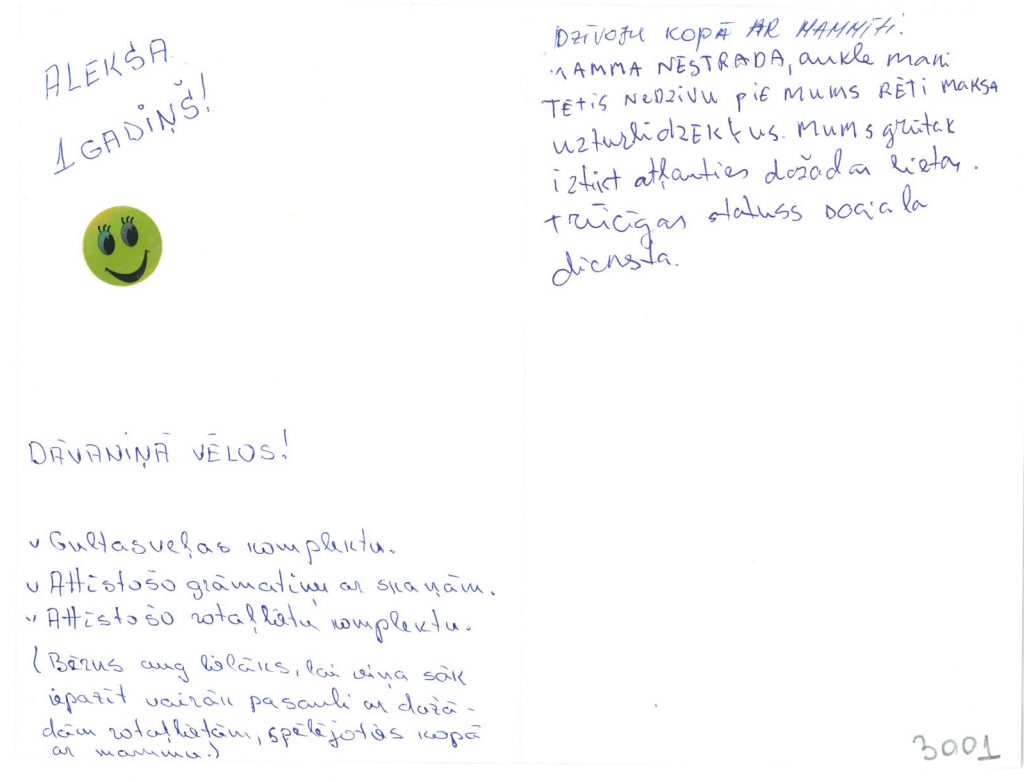 ALEKSA
1 GADIŅŠ!
DĀVANIŅĀ VĒLOS!
v Gultasveļas komplektu.
v Attīstošo grāmatiņu ar skaņām.
v Attīstošo rotaļlietu komplektu.
(Bērns aug lielāks, lai viņa sāk
iepazīt vairāk pasauli ar dažā-
dām rotaļlietām, spēlējoties kopā
ar mammu.)
DZĪVOJU KOPĀ AR MAMMĪTI.
MAMMA NESTRADA, aukle mani
TĒTIS NeDZIVU PIE MUMS RĒTI MAKSA
UZTURLIDZEKĻUS. MUMS grūtāk
iztikt atļauties dožadas lietas.
trūcīgas statuss sociala
diensta.
3001